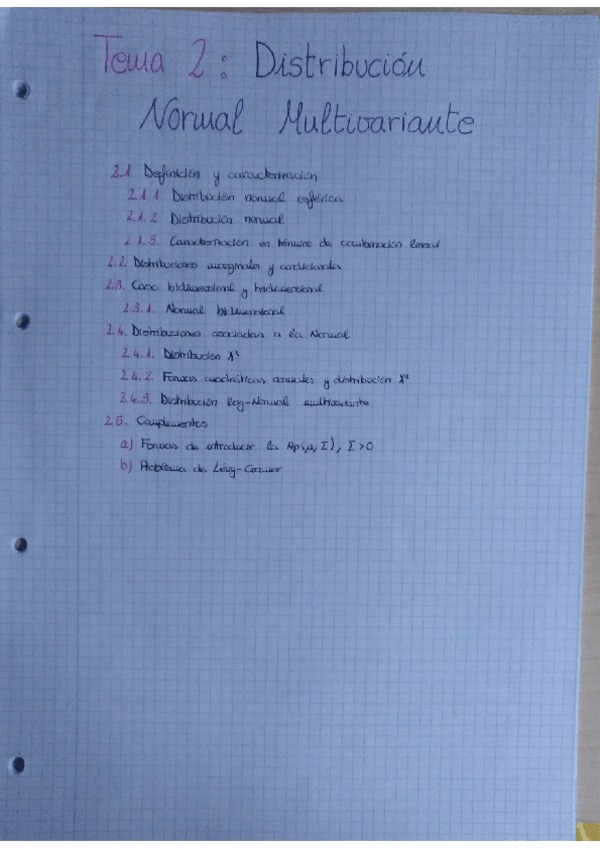 Tema 2: Distribución
Normal Multivariante
2.1 Definición y caracterización
2.1.1 Distribución normal esférica
2.1.2 Distribución normal
2.1.3. Caracterización en término de combinación lineal
2.2. Distribuciones marginales y condicionales
2.3. Caso bidimensional y tridimensional
2.3.1. Normal bidimensional
2.4. Distribuciones asociadas a la Normal
2.4.1. Distribución χ²
2.4.2. Formas cuadráticas normales y distribución χ²
2.4.3. Distribución log-Normal multivariante
2.5. Complementos
a) Formas de introducir la Np(μ, Σ), Σ>0
b) Problema de Lévy-Cramer